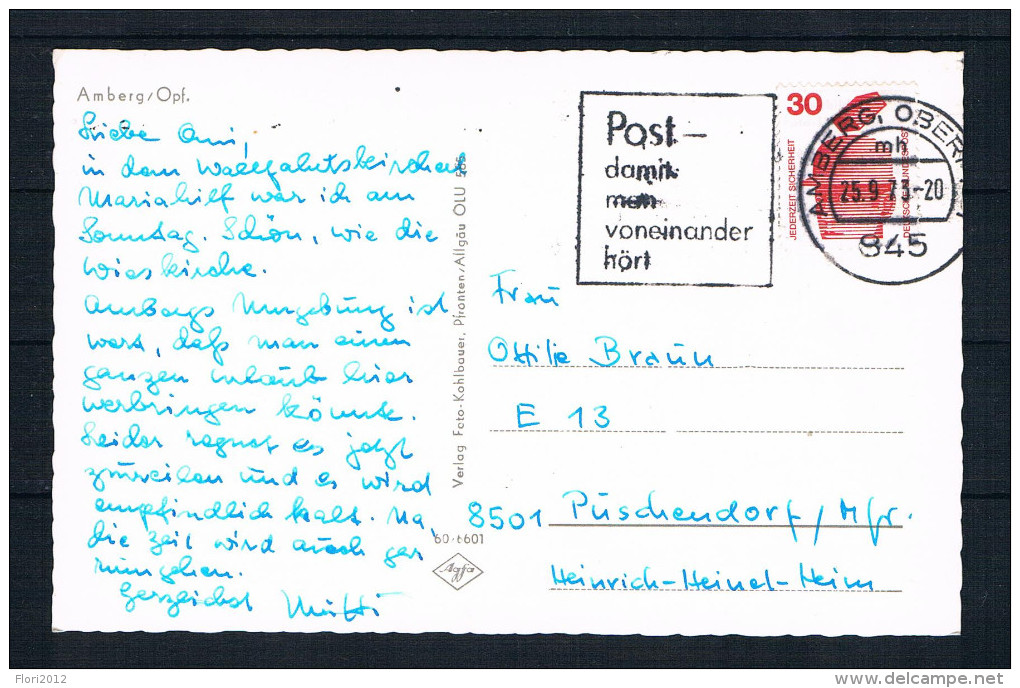 Amberg/Opf.
Liebe Omi,
in dem Wallfahrtskirchen
Mariahilf war ich am
Sonntag. Schön, wie die
Wieskirche.
Ambergs Umgebung ist
wert, daß man einen
ganzen Urlaub hier
verbringen könnte.
Leider regnet es jetzt
zuweilen und es wird
empfindlich kalt. Na,
die Zeit wird auch ger
rumgehen.
Herzlichst Mutti
Verlag Foto-Kohlbauer, Pfronten/Allgäu OLU 565
60·6601
Agfa
Post –
damit
man
voneinander
hört
30
JEDERZEIT SICHERHEIT
DEUTSCHE BUNDESPOST
AMBERG, OBERPF
mh
25.9.73-20
845
Frau
Ottilie Braun
E 13
8501 Puschendorf/Mfr.
Heinrich-Heinel-Heim
Flori2012
delcampe.net